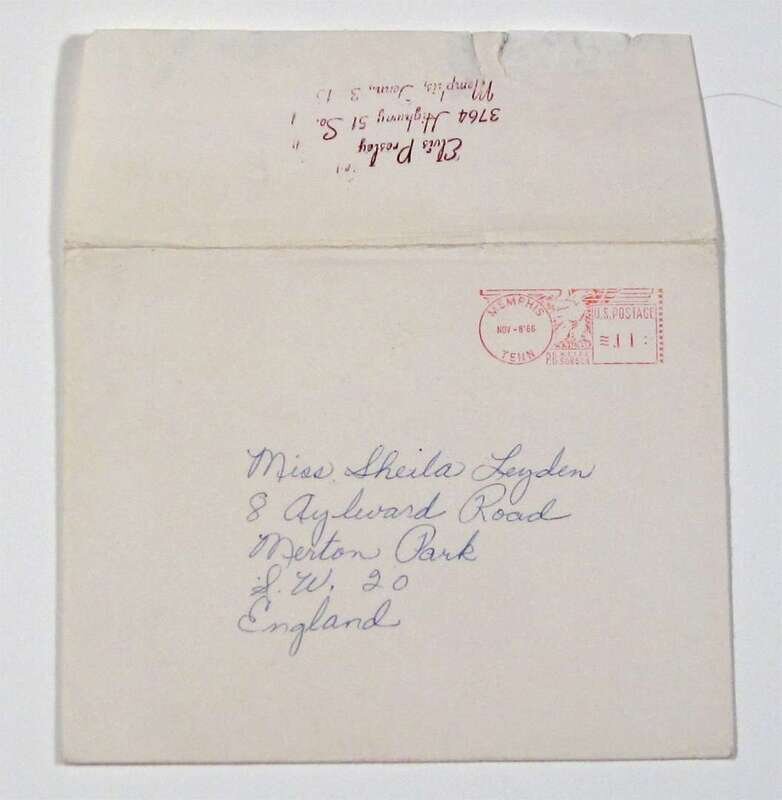 Elvis Presley
3764 Highway 51 So.
Memphis, Tenn.
MEMPHIS
NOV -8'66
TENN
U.S. POSTAGE
11
Miss. Sheila Leyden
8 Aylward Road
Merton Park
S.W. 20
England